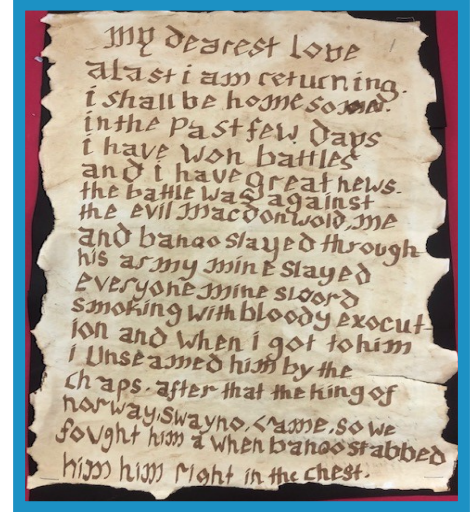 my dearest love
alast i am returning.
i shall be home
in the past few days
i have won battles
and i have great news.
the battle was against
the evil macdonwold, me
and banqo slayed through
his army mine slayed
everyone mine sword
smoking with bloody exocut-
ion and when i got to him
i unseamed him by the
chaps. after that the king of
norway, swayno, came, so we
fought him & when banqo stabbed
him him right in the chest.